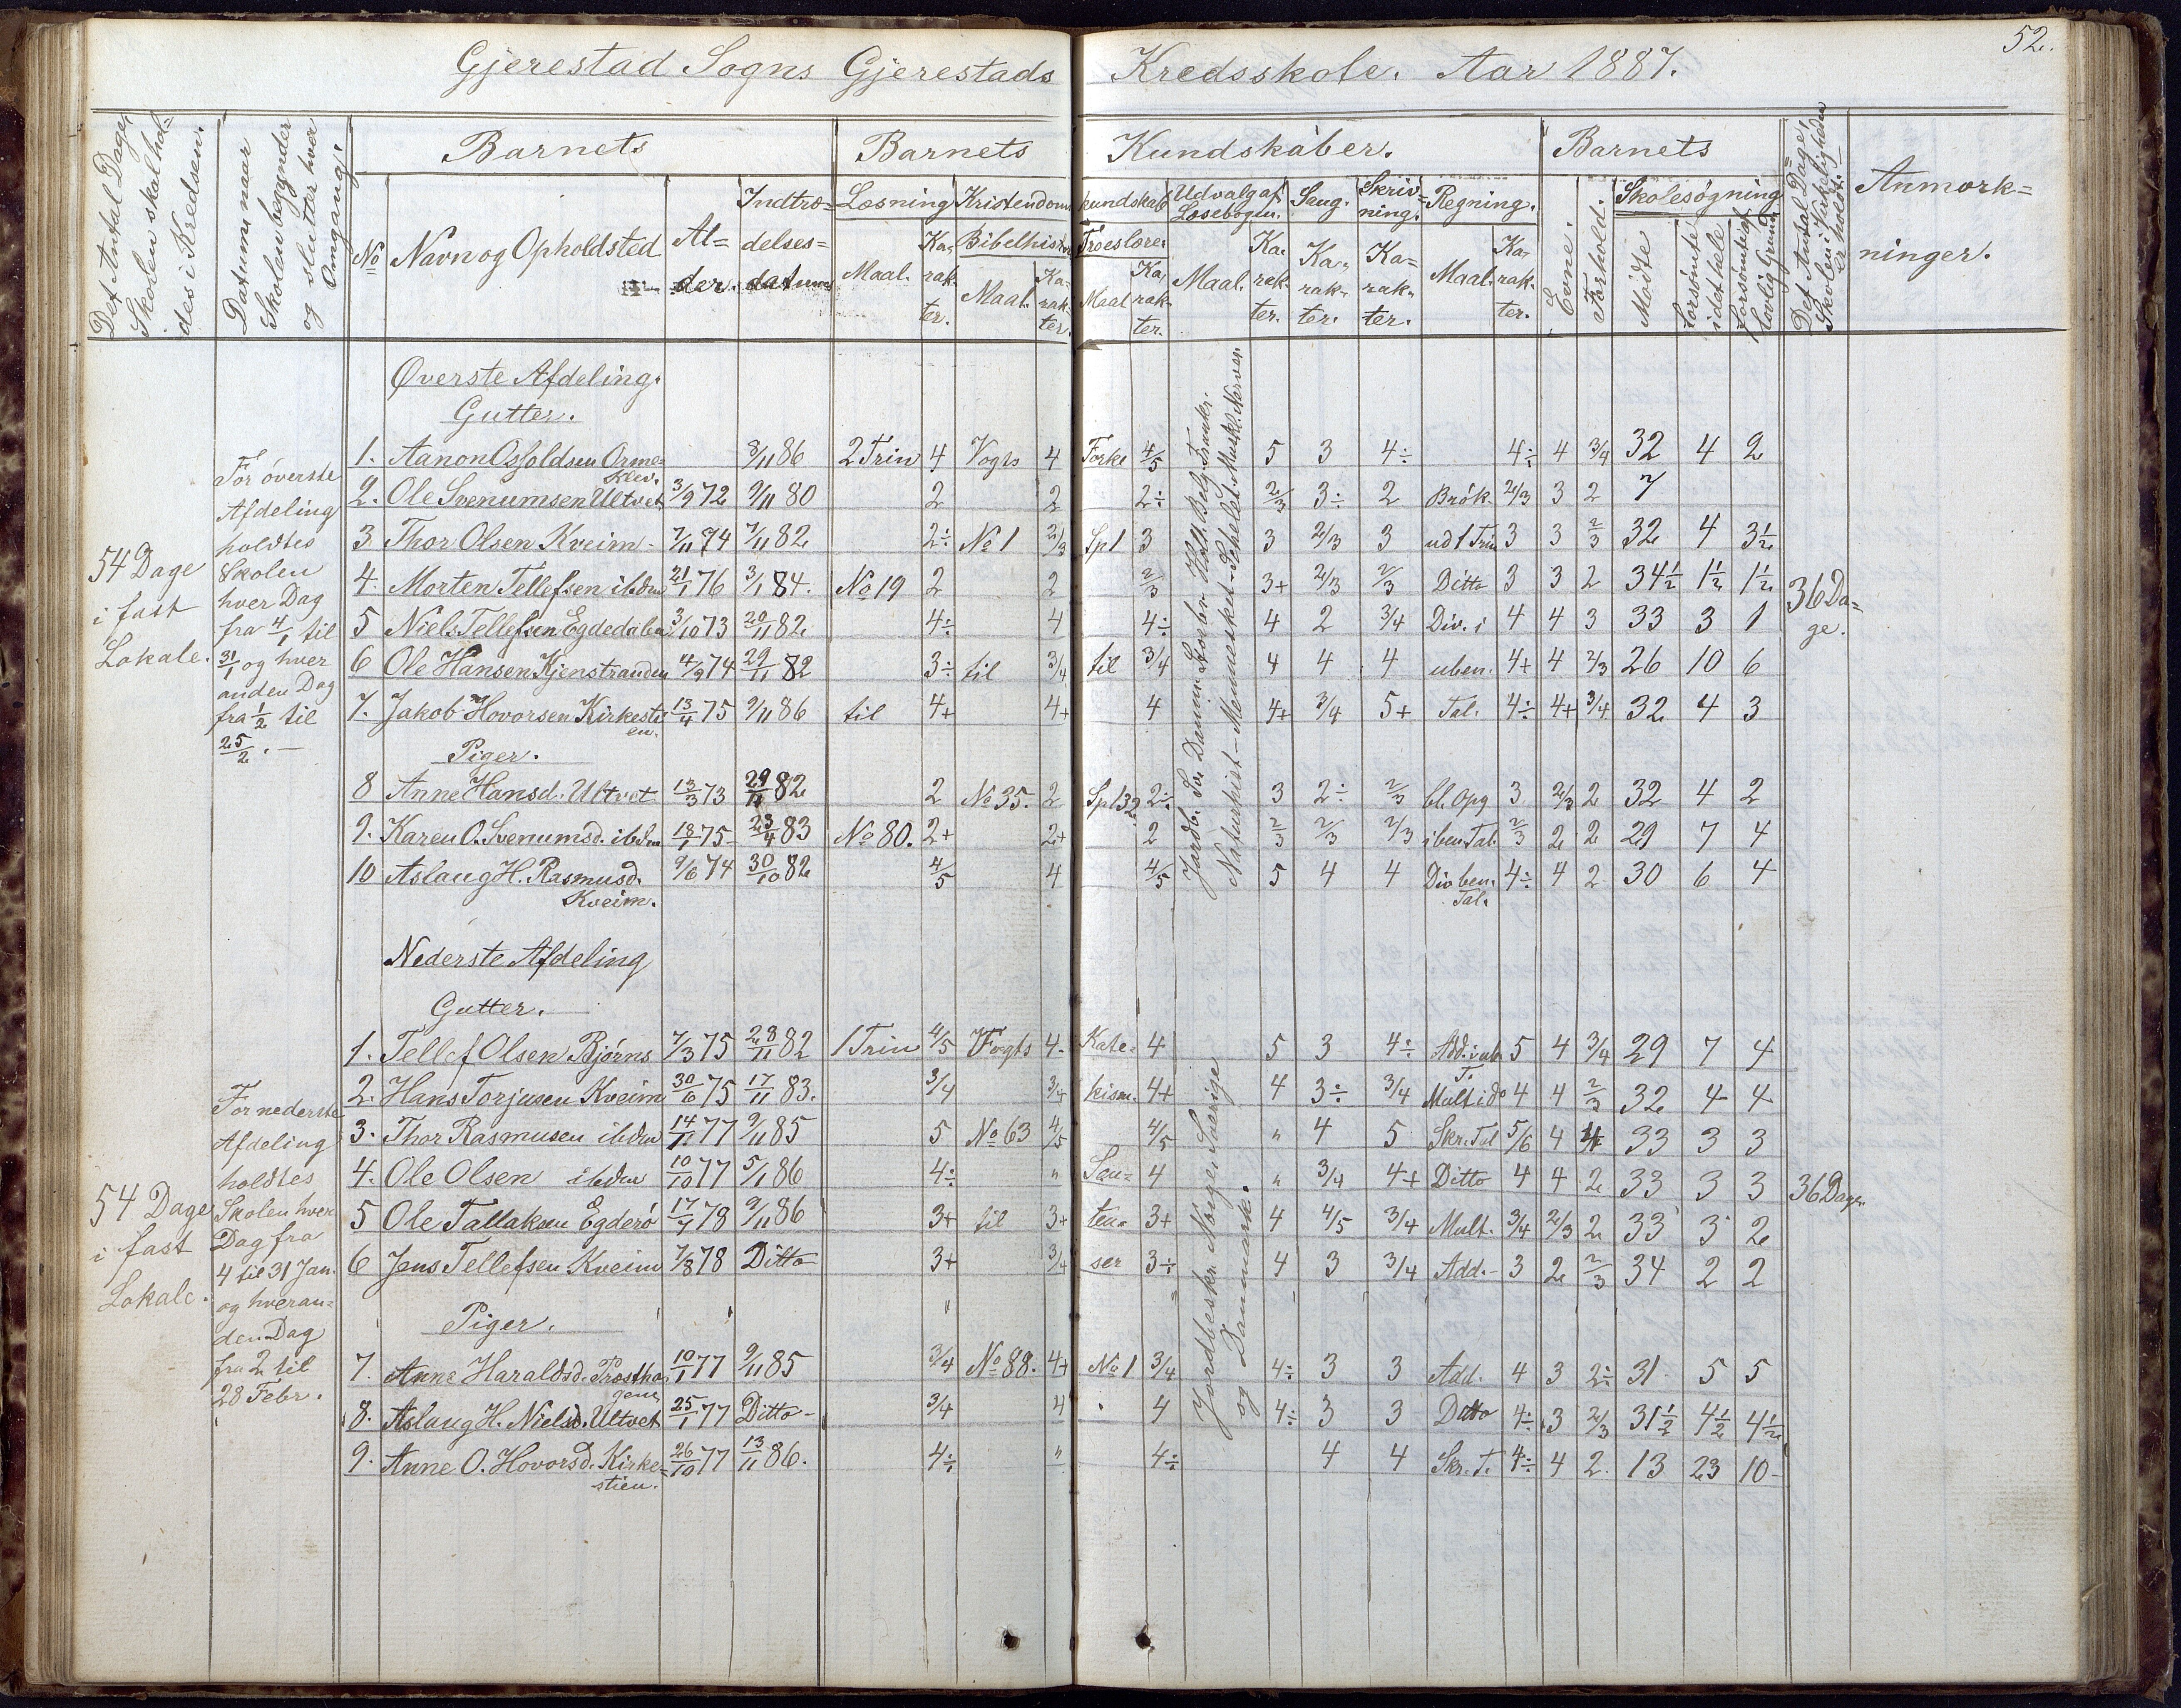 52.
Gjerestad Sogns Gjerestads Kredsskole. Aar 1887.
Det Antal Dage, Skolen skal holdes i Kredsen.
Datum naar Skolen begynder og slutter hver Omgang.
Barnets
Barnets Kundskaber.
Barnets
Det Antal Dage, Skolen i Virkeligheden er holdt.
Anmærkninger.
No
Navn og Opholdsted
Alder.
Indtrædelsesdatum
Læsning
Kristendomskundskab
Udvalg af Læsebogen.
Sang.
Skrivning.
Regning.
Evne.
Forhold.
Skolesøgning
Bibelhistorie
Troeslære.
Maal. Karakter. Maal. Karakter. Maal Karakter. Maal. Karakter. Karakter. Karakter. Maal. Karakter.
Mødte
forsømte i det hele
forsømte af lovlig Grund
Øverste Afdeling.
Gutter.
54 Dage i fast Lokale.
For øverste Afdeling holdtes Skolen hver Dag fra 4/1 til 31/1 og hver anden Dag fra 1/2 til 25/2.
1. Aanon Osfoldsen Ormeklev. 8/11 86 2 Trin 4 Vogts 4 Forke 4/5 5 3 4÷ 4÷ 4 3/4 32 4 2
2. Ole Svenumsen Ultvet 3/9 72 9/11 80 2 2 2÷ 2/3 3÷ 2 Brøk. 2/3 3 2 7
3 Thor Olsen Kveim 7/11 74 7/11 82 2÷ No 1 2/3 Sp 1 3 3 2/3 3 ud 1 Trin 3 3 2/3 32 4 3½
4. Morten Tellefsen ibdm 21/1 76 3/1 84. No 19 2 2 2/3 3+ 2/3 2/3 Ditto 3 3 2 34½ 1½ 1½
36 Dage.
5 Niels Tellefsen Egdedalen 3/10 73 20/11 82 4÷ 4 4÷ 4 2 3/4 Div. i 4 4 3 33 3 1
6 Ole Hansen Kjenstranden 4/9 74 29/11 82 3÷ til 3/4 til 3/4 4 4 4 uben. 4+ 4 2/3 26 10 6
7. Jakob Hovorsen Kirkestien. 13/4 75 9/11 86 til 4+ 4+ 4 4+ 3/4 5+ Tal. 4÷ 4+ 3/4 32 4 3
Piger.
8 Anne Hansd. Ultvet 13/3 73 29/11 82 2 No 35. 2 Sp 132 2÷ 3 2÷ 2/3 bl. Opg 3 2/3 2 32 4 2
9. Karen O. Svenumsd. ibdm 18/1 75 23/4 83 No 80. 2+ 2+ 2 2/3 2/3 2/3 iben Tal. 2/3 2 2 29 7 4
10 Aslaug H. Rasmusd. Kveim. 9/6 74 30/10 82 4/5 4 4/5 5 4 4 Div ben. Tal. 4÷ 4 2 30 6 4
Naturhist – Mennesket – Skelet – Muskl. Nerver.
Nederste Afdeling
Gutter.
54 Dage i fast Lokale.
For nederste Afdeling holdtes Skolen hver Dag fra 4 til 31 Jan. og hveranden Dag fra 2 til 28 Febr.
1. Tellef Olsen Bjørns 7/3 75 28/11 82 1 Trin 4/5 Vogts 4. Kate- 4 5 3 4÷ Add. i ub. T. 5 4 3/4 29 7 4
2. Hans Torjusen Kveim 30/6 75 17/11 83. 3/4 3/4 kism. 4+ 4 3÷ 3/4 Mult i do 4 4 2/3 32 4 4
3. Thor Rasmusen ibdm 14/11 77 9/11 85 5 No 63 4/5 4/5 " 4 5 Skr. Tal 5/6 4 4 33 3 3
4. Ole Olsen ibdm 10/10 77 5/1 86 4÷ " Sen- 4 " 3/4 4+ Ditto 4 4 2 33 3 3
36 Dage.
5 Ole Tallaksen Egderø 17/7 78 9/11 86 3+ til 3+ ten- 3+ 4 4/5 3/4 Mult. 3/4 2/3 2 33 3 2
6 Jens Tellefsen Kveim 7/8 78 Ditto 3+ 3/4 ser 3÷ 4 3 3/4 Add. 3 2 2/3 34 2 2
Piger.
7. Anne Haraldsd. Prosthagene 10/1 77 9/11 85 3/4 No 88. 4+ No 1 3/4 4÷ 3 3 Add. 4 3 2÷ 31 5 5
8. Aslaug H. Nielsd. Ultvet 25/1 77 Ditto 3/4 4 4 4÷ 3 3 Ditto 4÷ 3 2/3 31½ 4½ 4½
9. Anne O. Hovorsd. Kirkestien. 26/10 77 13/11 86. 4÷ " 4÷ 4 4 Skr. T. 4÷ 4 2. 13 23 10
Jordbeskr. Norge, Sverige og Danmark.